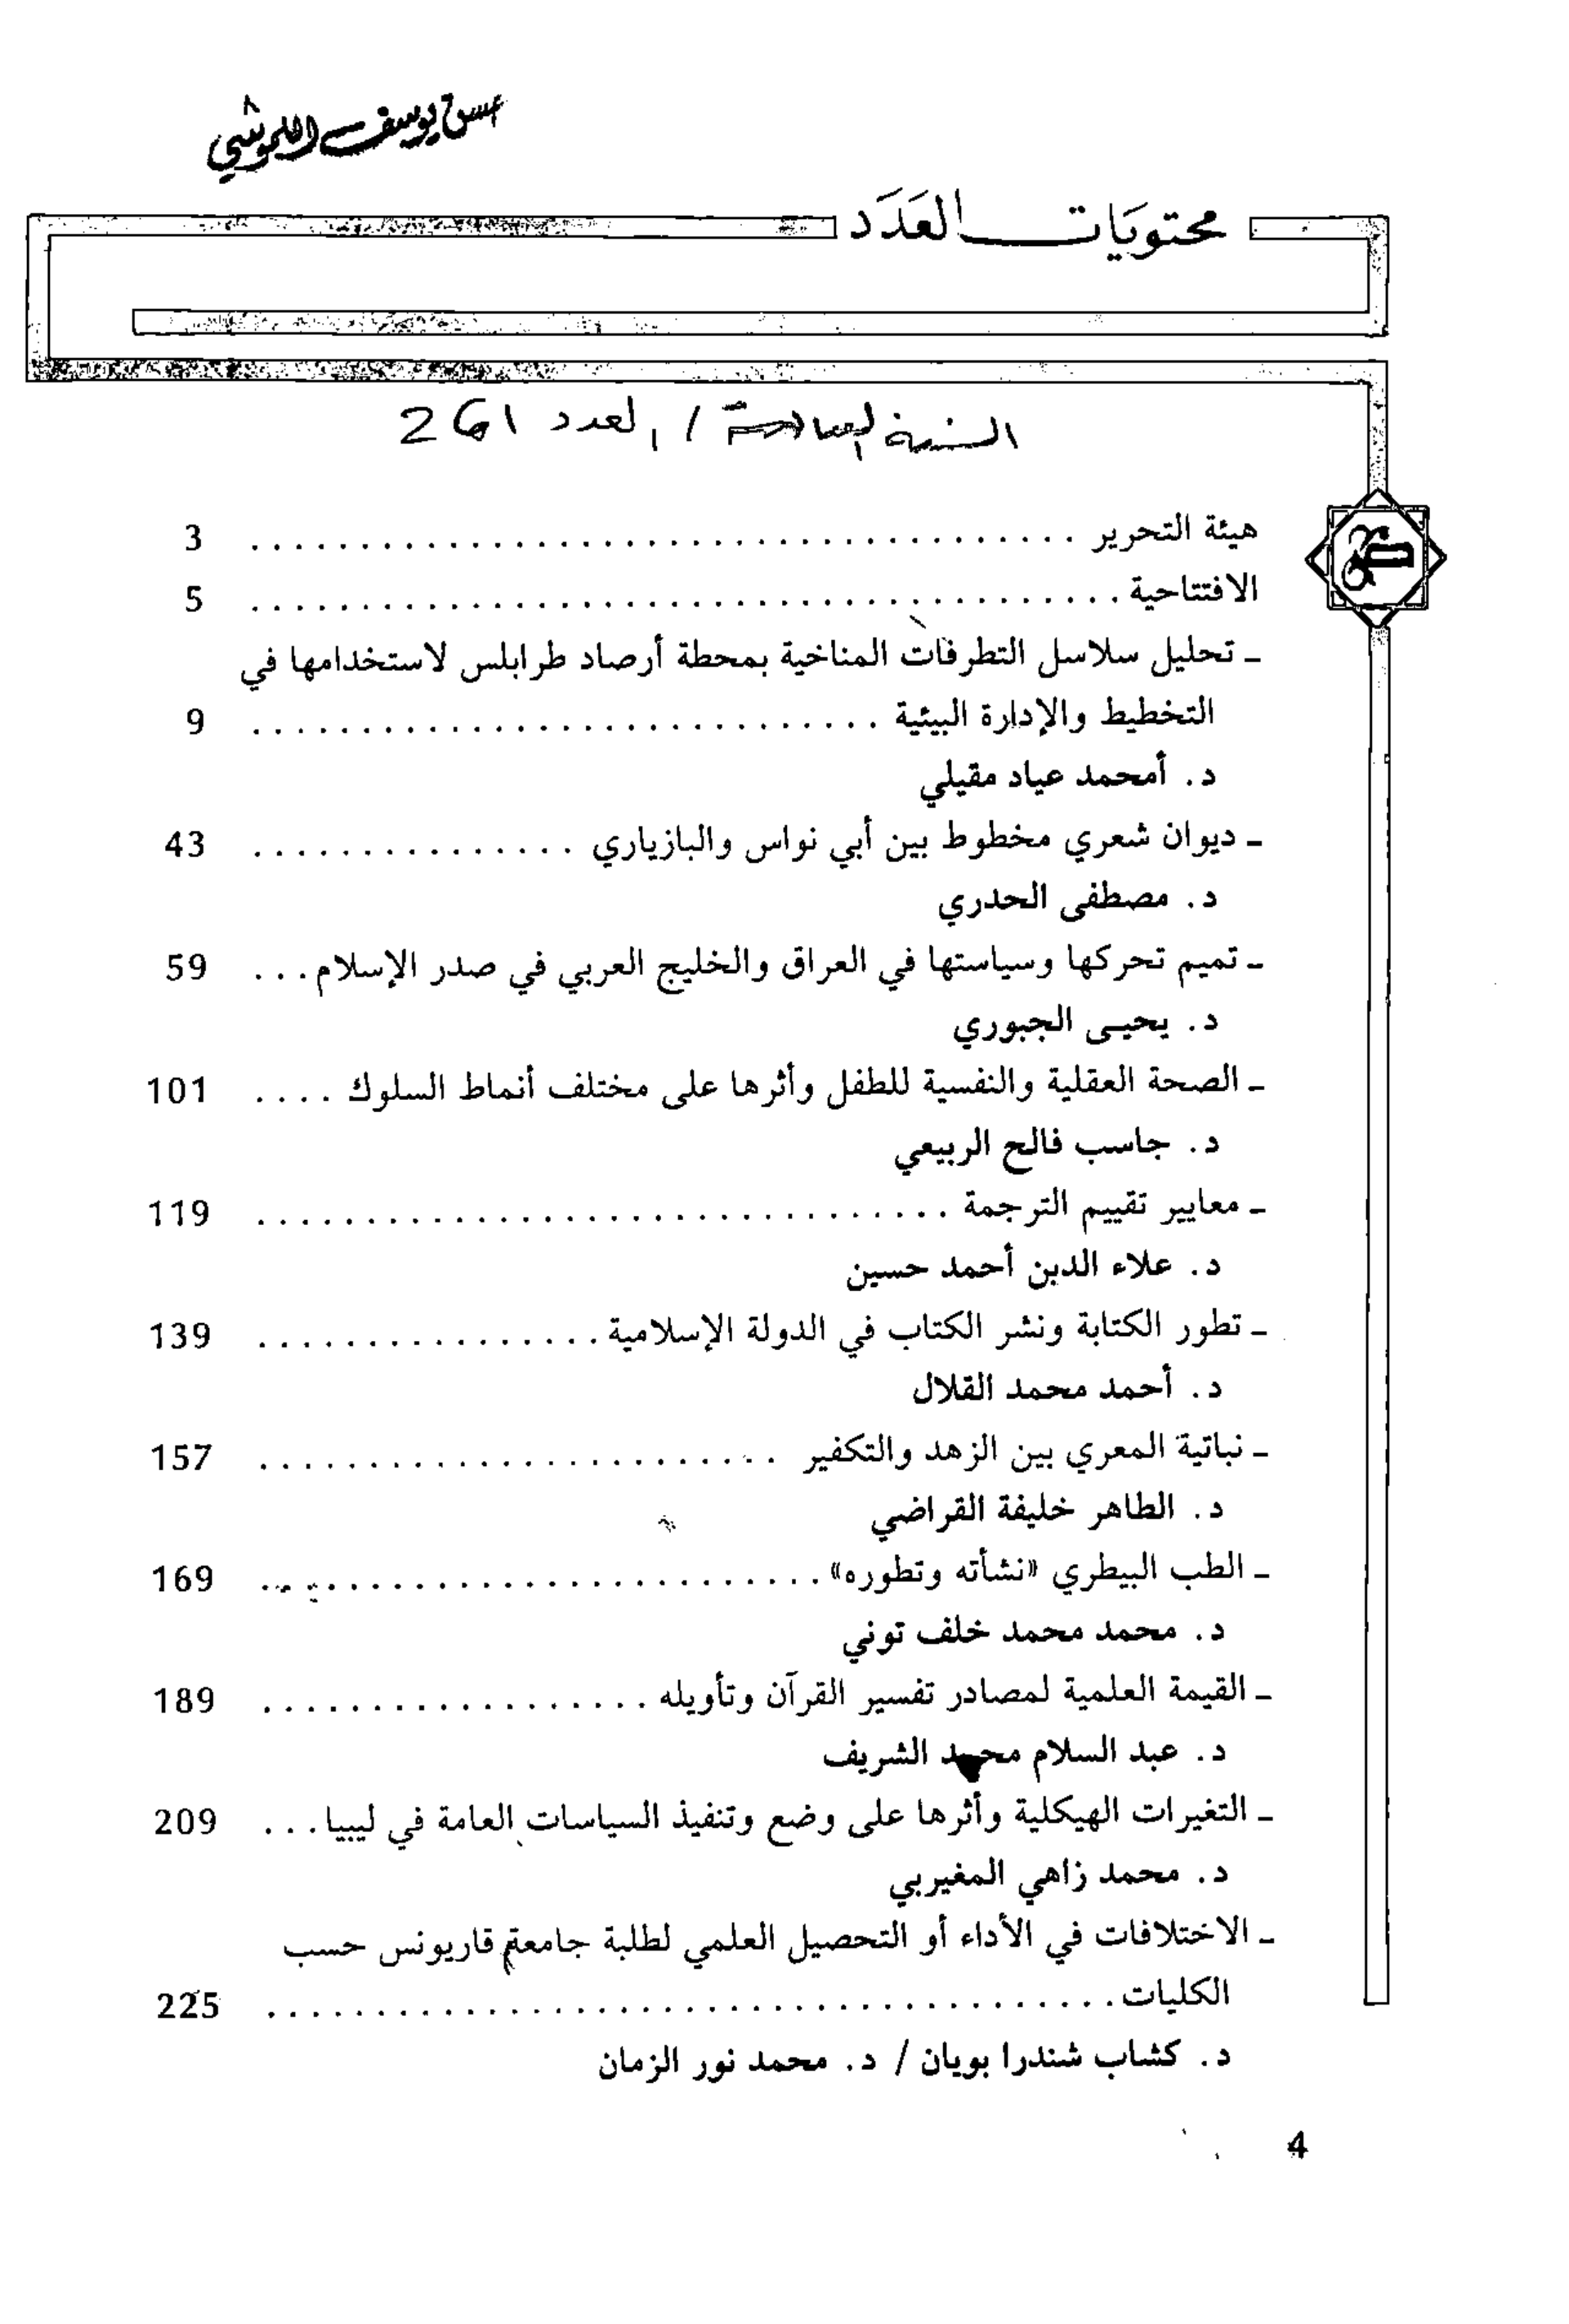 محتويات العدد
السنة / العدد 1 و 2
هيئة التحرير ........................................ 3
الافتتاحية ........................................ 5
ـ تحليل سلاسل التطرفات المناخية بمحطة أرصاد طرابلس لاستخدامها في
التخطيط والإدارة البيئية ............................. 9
د. أمحمد عياد مقيلي
ـ ديوان شعري مخطوط بين أبي نواس والبازياري ............... 43
د. مصطفى الحدري
ـ تميم تحركها وسياستها في العراق والخليج العربي في صدر الإسلام ... 59
د. يحيى الجبوري
ـ الصحة العقلية والنفسية للطفل وأثرها على مختلف أنماط السلوك .... 101
د. جاسب فالح الربيعي
ـ معايير تقييم الترجمة ................................ 119
د. علاء الدين أحمد حسين
ـ تطور الكتابة ونشر الكتاب في الدولة الإسلامية ................ 139
د. أحمد محمد القلال
ـ نباتية المعري بين الزهد والتكفير ........................ 157
د. الطاهر خليفة القراضي
ـ الطب البيطري «نشأته وتطوره» .......................... 169
د. محمد محمد خلف توني
ـ القيمة العلمية لمصادر تفسير القرآن وتأويله .................. 189
د. عبد السلام محمد الشريف
ـ التغيرات الهيكلية وأثرها على وضع وتنفيذ السياسات العامة في ليبيا ... 209
د. محمد زاهي المغيربي
ـ الاختلافات في الأداء أو التحصيل العلمي لطلبة جامعة قاريونس حسب
الكليات ....................................... 225
د. كشاب شندرا بويان / د. محمد نور الزمان
4